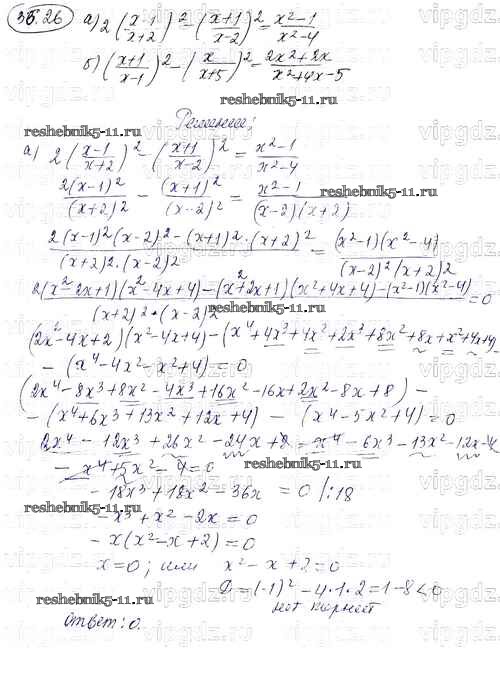 35.26 а) 2((x-1)/(x+2))² - ((x+1)/(x-2))² = (x²-1)/(x²-4)
б) ((x+1)/(x-1))² - (x/(x+5))² = (2x²+2x)/(x²+4x-5)
reshebnik5-11.ru
Решение:
reshebnik5-11.ru
а) 2((x-1)/(x+2))² - ((x+1)/(x-2))² = (x²-1)/(x²-4)
2(x-1)²/(x+2)² - (x+1)²/(x-2)² = (x²-1)/((x-2)(x+2))
reshebnik5-11.ru
(2(x-1)²(x-2)² - (x+1)²·(x+2)²)/((x+2)²·(x-2)²) = (x²-1)(x²-4)/((x-2)²(x+2)²)
reshebnik5-11.ru
(2(x²-2x+1)(x²-4x+4)-(x²+2x+1)(x²+4x+4)-(x²-1)(x²-4))/((x+2)²·(x-2)²) = 0
(2x²-4x+2)(x²-4x+4)-(x⁴+4x³+4x²+2x³+8x²+8x+x²+4x+4)
- (x⁴-4x²-x²+4) = 0
(2x⁴-8x³+8x²-4x³+16x²-16x+2x²-8x+8) -
- (x⁴+6x³+13x²+12x+4) - (x⁴-5x²+4) = 0
2x⁴ - 12x³ + 26x² - 24x + 8 - x⁴ - 6x³ - 13x² - 12x - 4
- x⁴+5x² - 4 = 0
reshebnik5-11.ru
- 18x³ + 18x² - 36x = 0 |:18
reshebnik5-11.ru
- x³ + x² - 2x = 0
- x(x² - x + 2) = 0
x=0; или x² - x + 2 = 0
D = (-1)² - 4·1·2 = 1-8 < 0
reshebnik5-11.ru
нет корней
Ответ: 0.
vipgdz